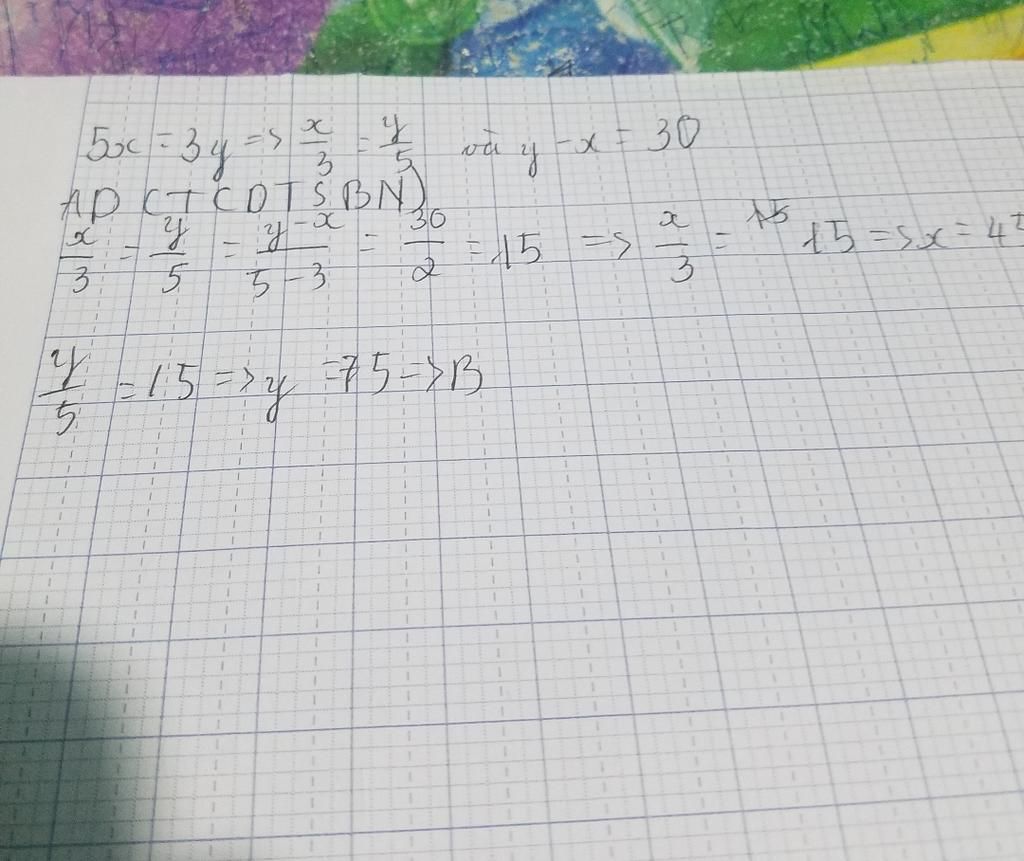 5x = 3y => x/3 = y/5 và y - x = 30
AD CTCDTSBN)
x/3 = y/5 = y-x/5-3 = 30/2 = 15 => x/3 = 15 => x =
y/5 = 15 => y = 75 -> B